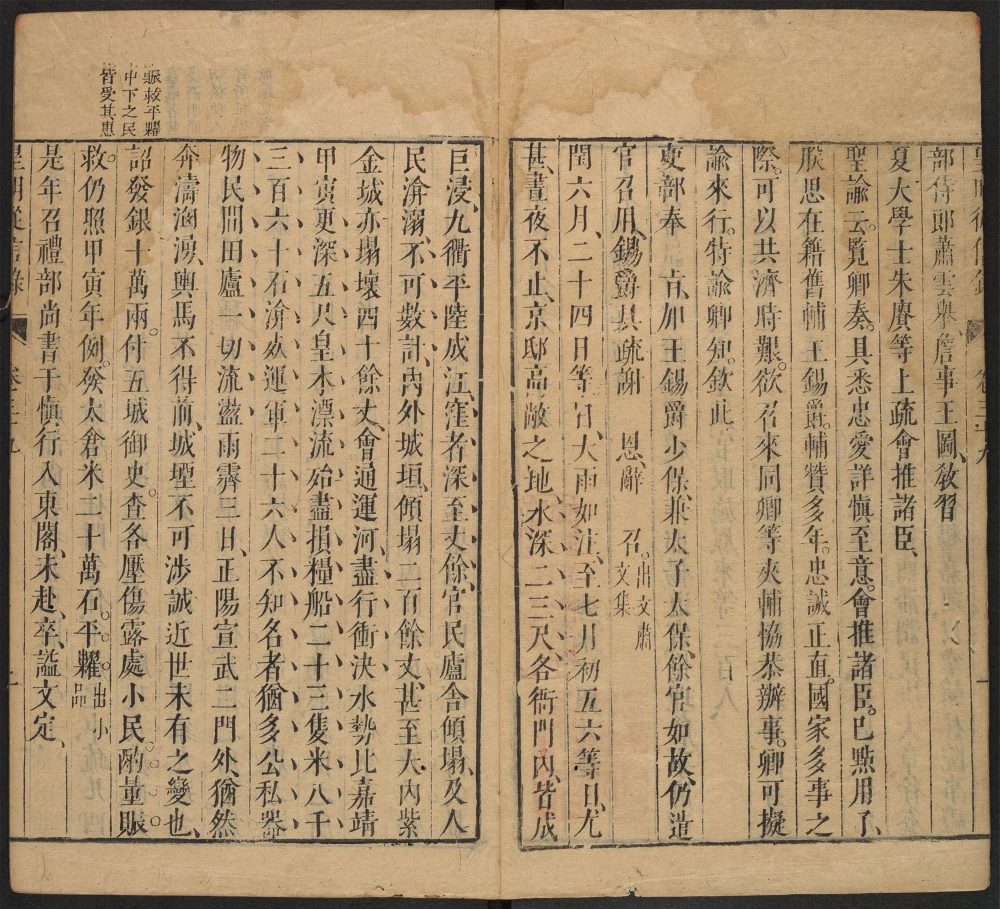 皇明從信錄 卷三十九 一
部侍郎蕭雲舉詹事王圖敎習
夏大學士朱賡等上疏會推諸臣
聖諭云覽卿奏具悉忠愛詳愼至意會推諸臣已點用了
朕思在籍舊輔王錫爵輔贊多年忠誠正直國家多事之
際可以共濟時艱欲召來同卿等夾輔恊恭辦事卿可擬
諭來行特諭卿知欽此
吏部奉 旨加王錫爵少保兼太子太保餘官如故仍遣
官召用錫爵具疏謝 恩辭 召出文肅文集
閏六月二十四日等日大雨如注至七月初五六等日尤
甚晝夜不止京邸高敞之地水深二三尺各衙門內皆成
巨浸九衢平陸成江窪者深至丈餘官民廬舍傾塌及人
民渰溺不可數計內外城垣傾塌二百餘丈甚至大內紫
金城亦塌壞四十餘丈會通運河盡行衝決水勢比嘉靖
甲寅更深五尺皇木漂流殆盡損糧船二十三隻米八千
三百六十石渰死運軍二十六人不知名者猶多公私器
物民間田廬一切流蕩雨霽三日正陽宣武二門外猶然
奔濤洶湧輿馬不得前城堙不可涉誠近世未有之變也
詔發銀十萬兩付五城御史查各壓傷露處小民酌量賑
救仍照甲寅年例發太倉米二十萬石平糶出小品
是年召禮部尚書于愼行入東閣未赴卒謚文定
皇明從信錄 卷三十九
賑救平糶
中下之民
皆受其惠